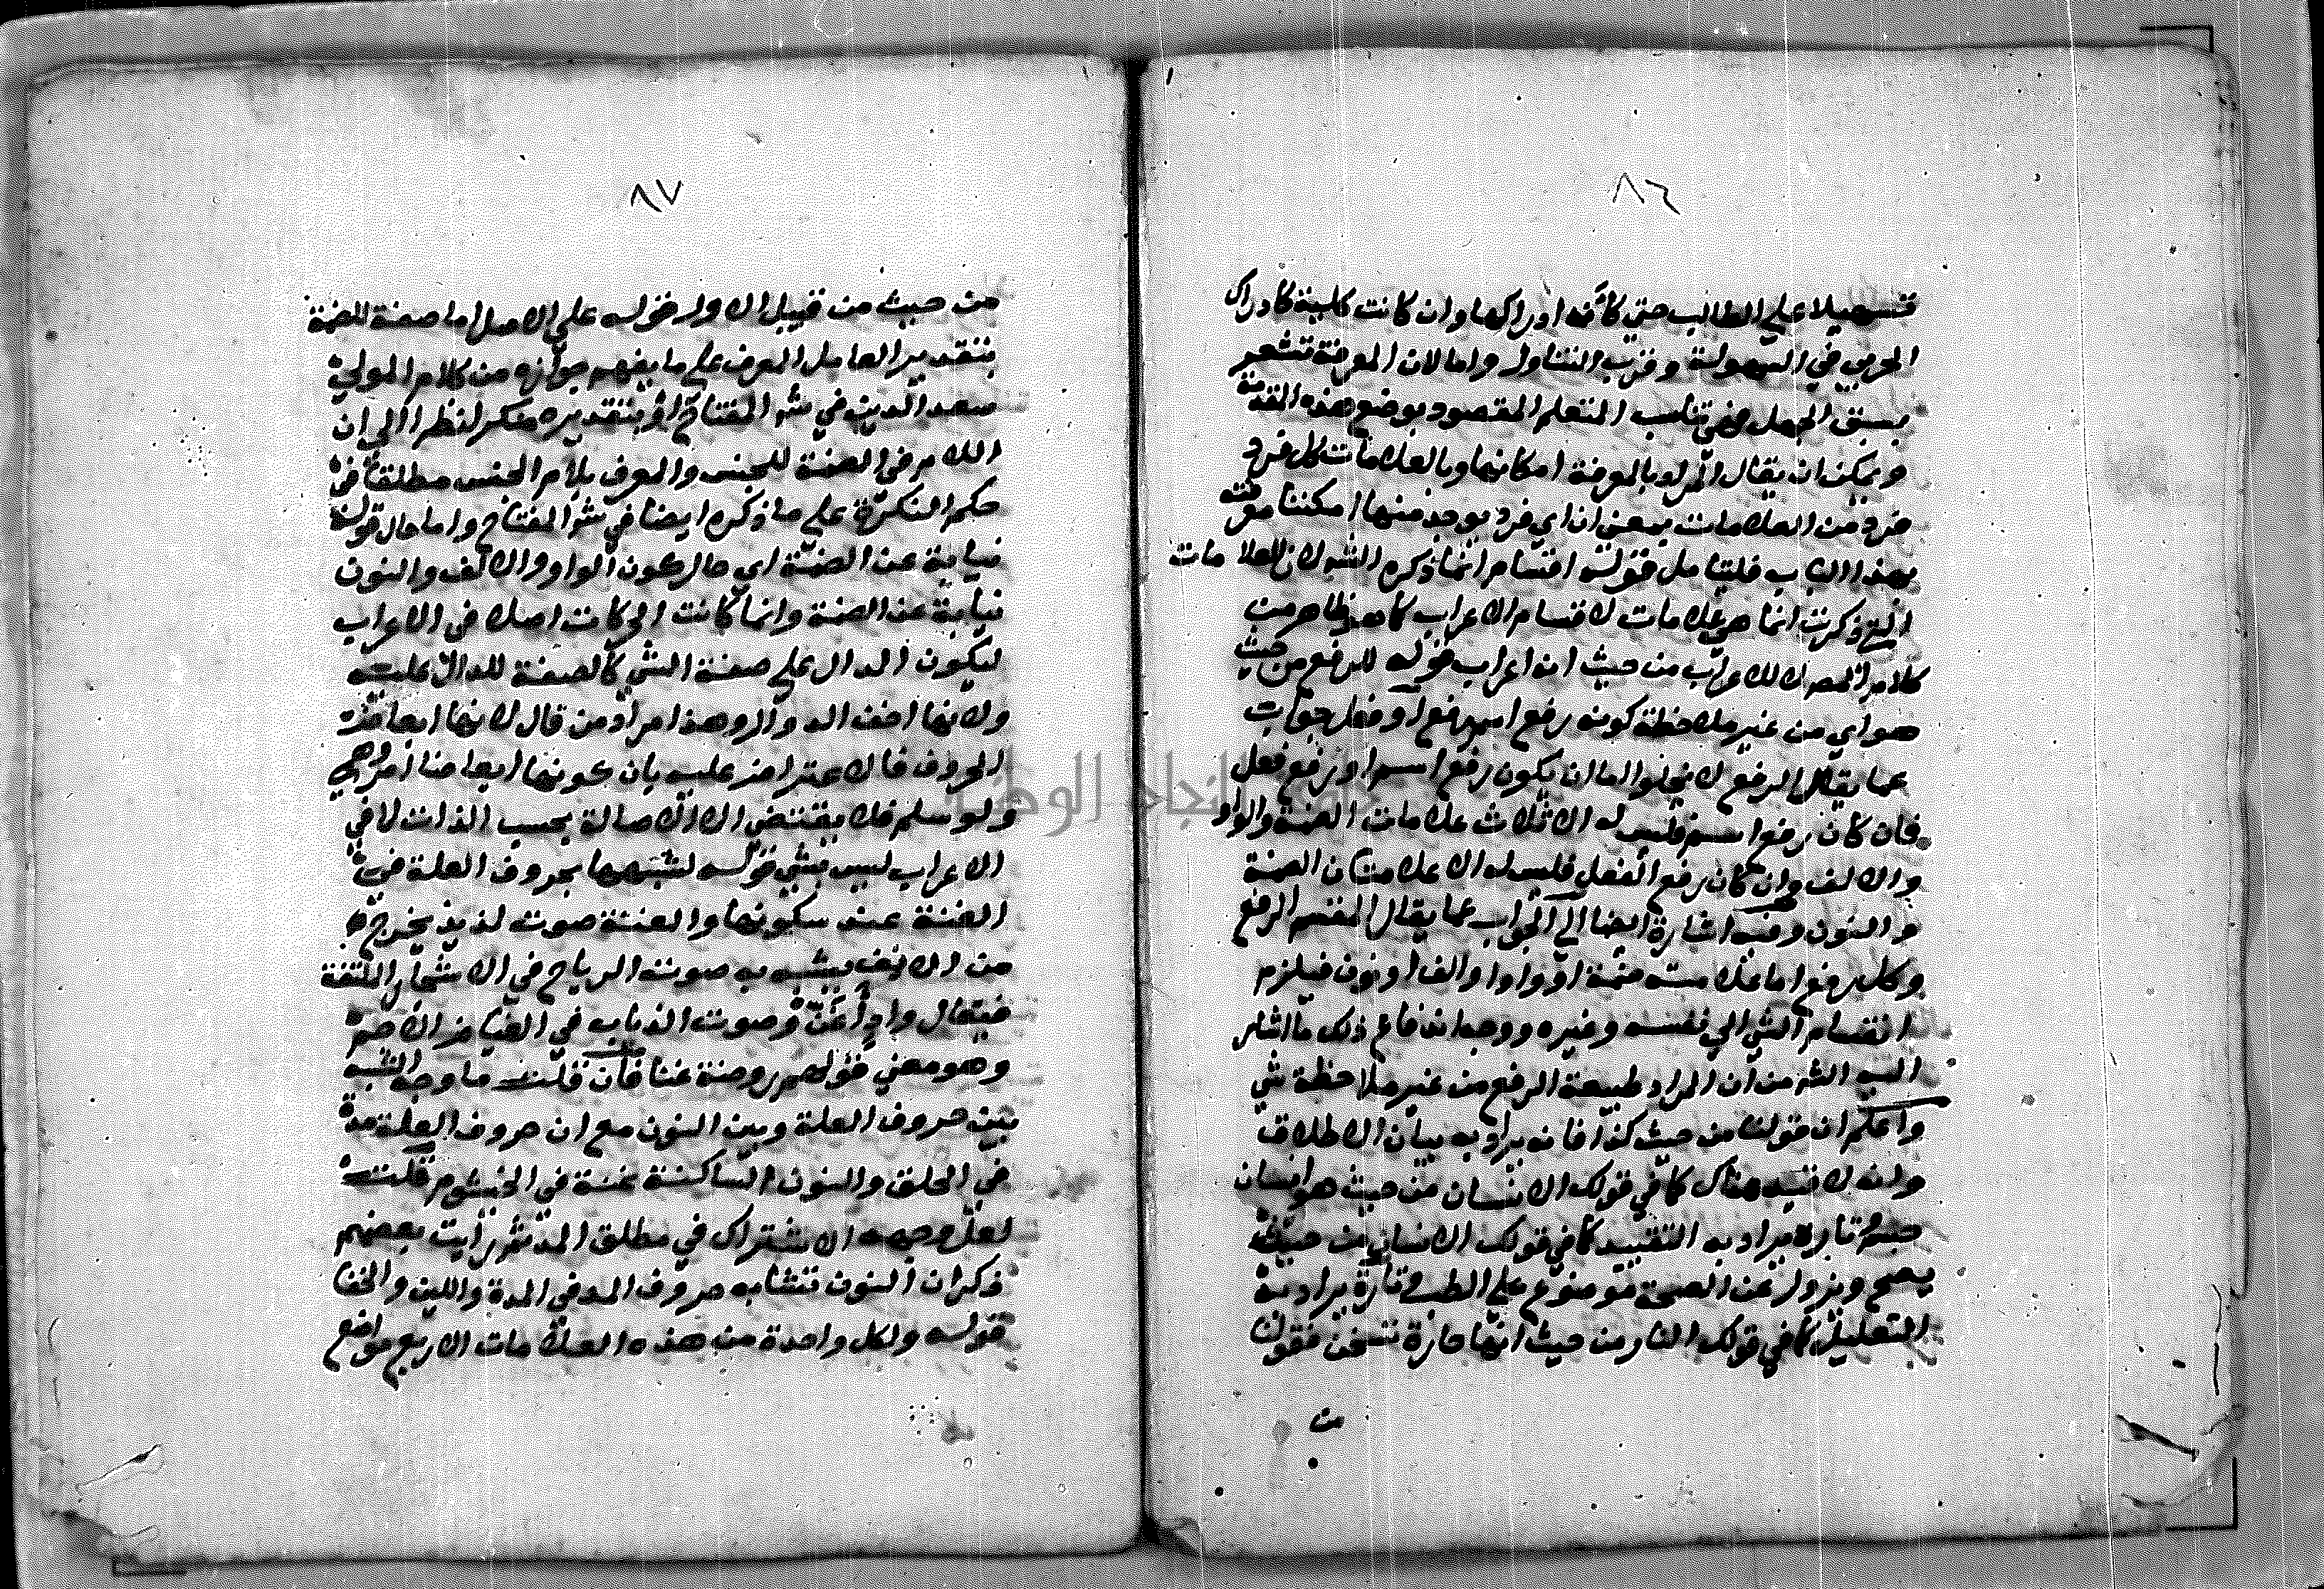 ٨٦
تسهيلا على الطالب حتى كأنه ادراكها وان كانت كلية كادراك
الجزئي في السهولة وقرب التناول واما لان المعرفة تشعر
بسبق الجهل فهي تناسب المتعلم المقصود بوضع هذه المقدمة
ويمكن ان يقال المراد بالمعرفة امكانها وبالعلامات كل فرد
فرد من العلامات بمعنى ان اي فرد يوجد منها امكننا معرفته
بهذا الباب فليتامل قوله اقسام انما ذكره الشه لان للعلامات
التي ذكرت انما هي علامات لاقسام الاعراب كما هو ظاهر من
كلام المصه لا للاعراب من حيث انه اعراب قوله للرفع من حيث
هو اي من غير ملاحظة كونه رفع اسم او فعل جواب
عما يقال الرفع لا يخلوا اما ان يكون رفع اسم او رفع فعل
فان كان رفع اسم فليس له الا ثلاث علامات الضمة والواو
والالف وان كان رفع الفعل فليس له الا علامتان الضمة
والنون وفيه اشارة ايضا الى الجواب عما يقال المقسم الرفع
وكل رفع اما علامته ضمة او واوا والف او نون فيلزم
انقسام الشي الى نفسه وغيره ووجه اندفاع ذلك ما اشار
اليه الشه من ان المراد طبيعة الرفع من غير ملاحظة شي
واعلم ان قولنا من حيث كذا فانه يراد به بيان الاطلاق
وانه لا تقييد هناك كما في قولك الانسان من حيث هو انسان
جسم وتارة يراد به التقييد كما في قولك الانسان من حيث
يصح ويزول عنه الصحة موضوع على الطب وتارة يراد به
التعليل كما في قولك النار من حيث انها حارة تسخن فقوله
من
٨٧
من حيث من قبيل الاول قوله على الاصل اما صفة للضمة
بتقدير العامل المعرف على ما يفهم جوازه من كلام المولى
سعد الدين في شه المفتاح او بتقديره منكرا نظرا الى ان
اللام في الضمة للجنس والمعرف بلام الجنس مطلقا في
حكم النكرة على ما ذكره ايضا في شه المفتاح واما حال قوله
نيابة عن الضمة اي حال كون الواو والالف والنون
نيابة عن الضمة وانما كانت الحركات اصلا في الاعراب
ليكون الدال على صفة الشي كالصفة للدال عليه
ولانها اخف الدوال وهذا مراد من قال لانها ابعاض
الحروف فالاعتراض عليه بان كونها ابعاضا امر وهمي
ولو سلم فلا يقتضي الا الاصالة بحسب الذات لا في
الاعراب ليس بشي قوله لشبهها بحروف العلة في
الغنة عند سكونها والغنة صوت لذيذ يخرج
من الانف يشبه به صوت الرياح في الاشجار الملتفة
فيقال واد أغن وصوت الذباب في
وهو معنى قولهم روضة غنا فان قلت ما وجه الشبه
بين حروف العلة وبين النون مع ان حروف العلة مدة
في الحلق والنون الساكنة غنة في الخيشوم قلت
لعل وجهه الاشتراك في مطلق المد ثم رايت بعضهم
ذكر ان النون تشابه حروف المد في المدة واللين والخفا
قوله ولكل واحدة من هذه العلامات الاربع مواضع